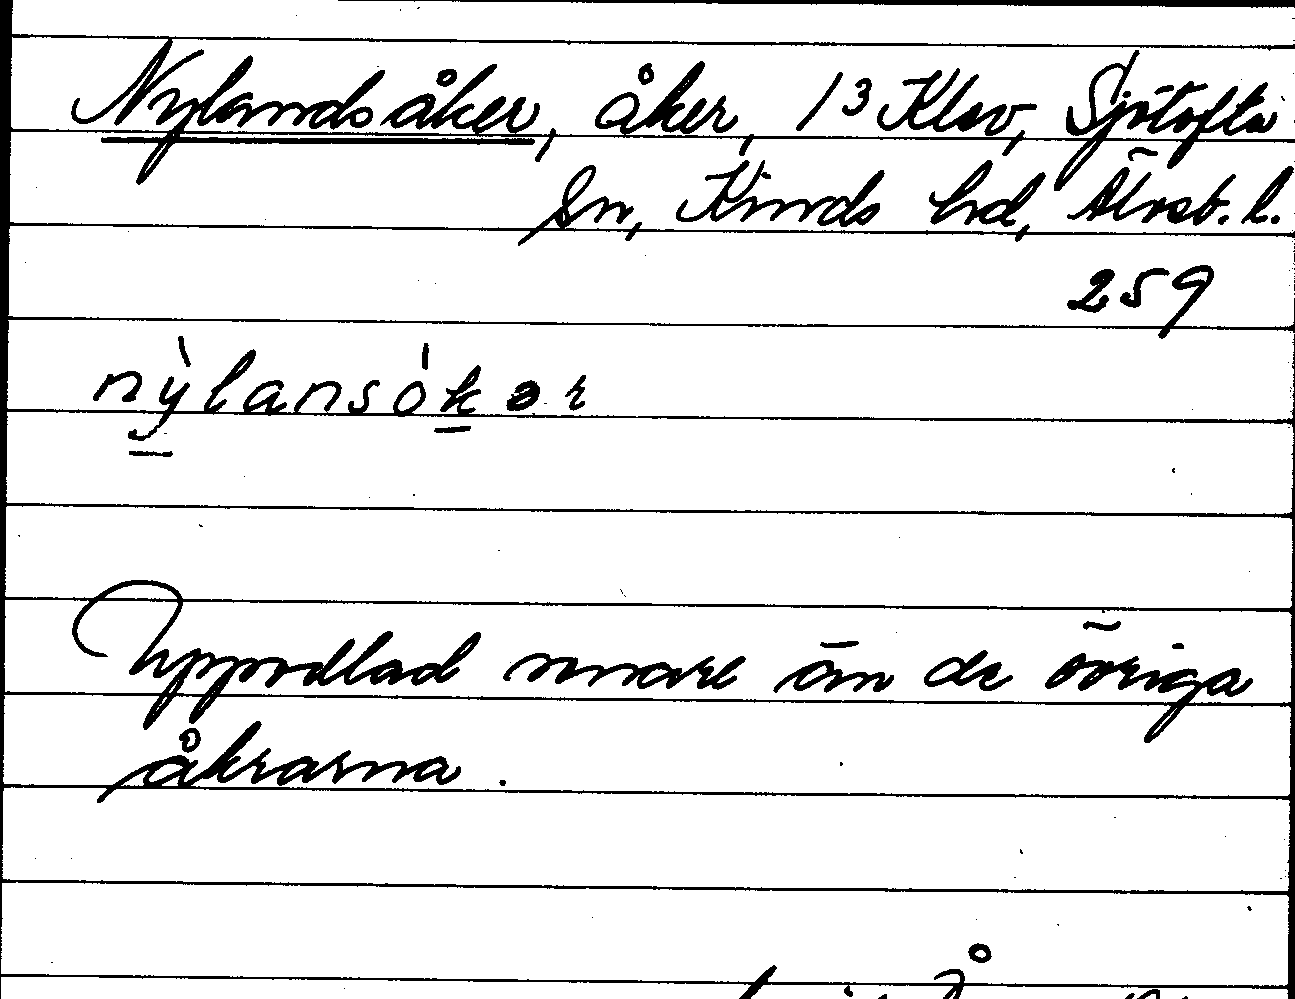 Nylandsåker, åker, 13 Klev, Sjötofta
sn, Kinds hd, Älvsb. l.
259
nỳlansókər
Uppodlad senare än de övriga
åkrarna.